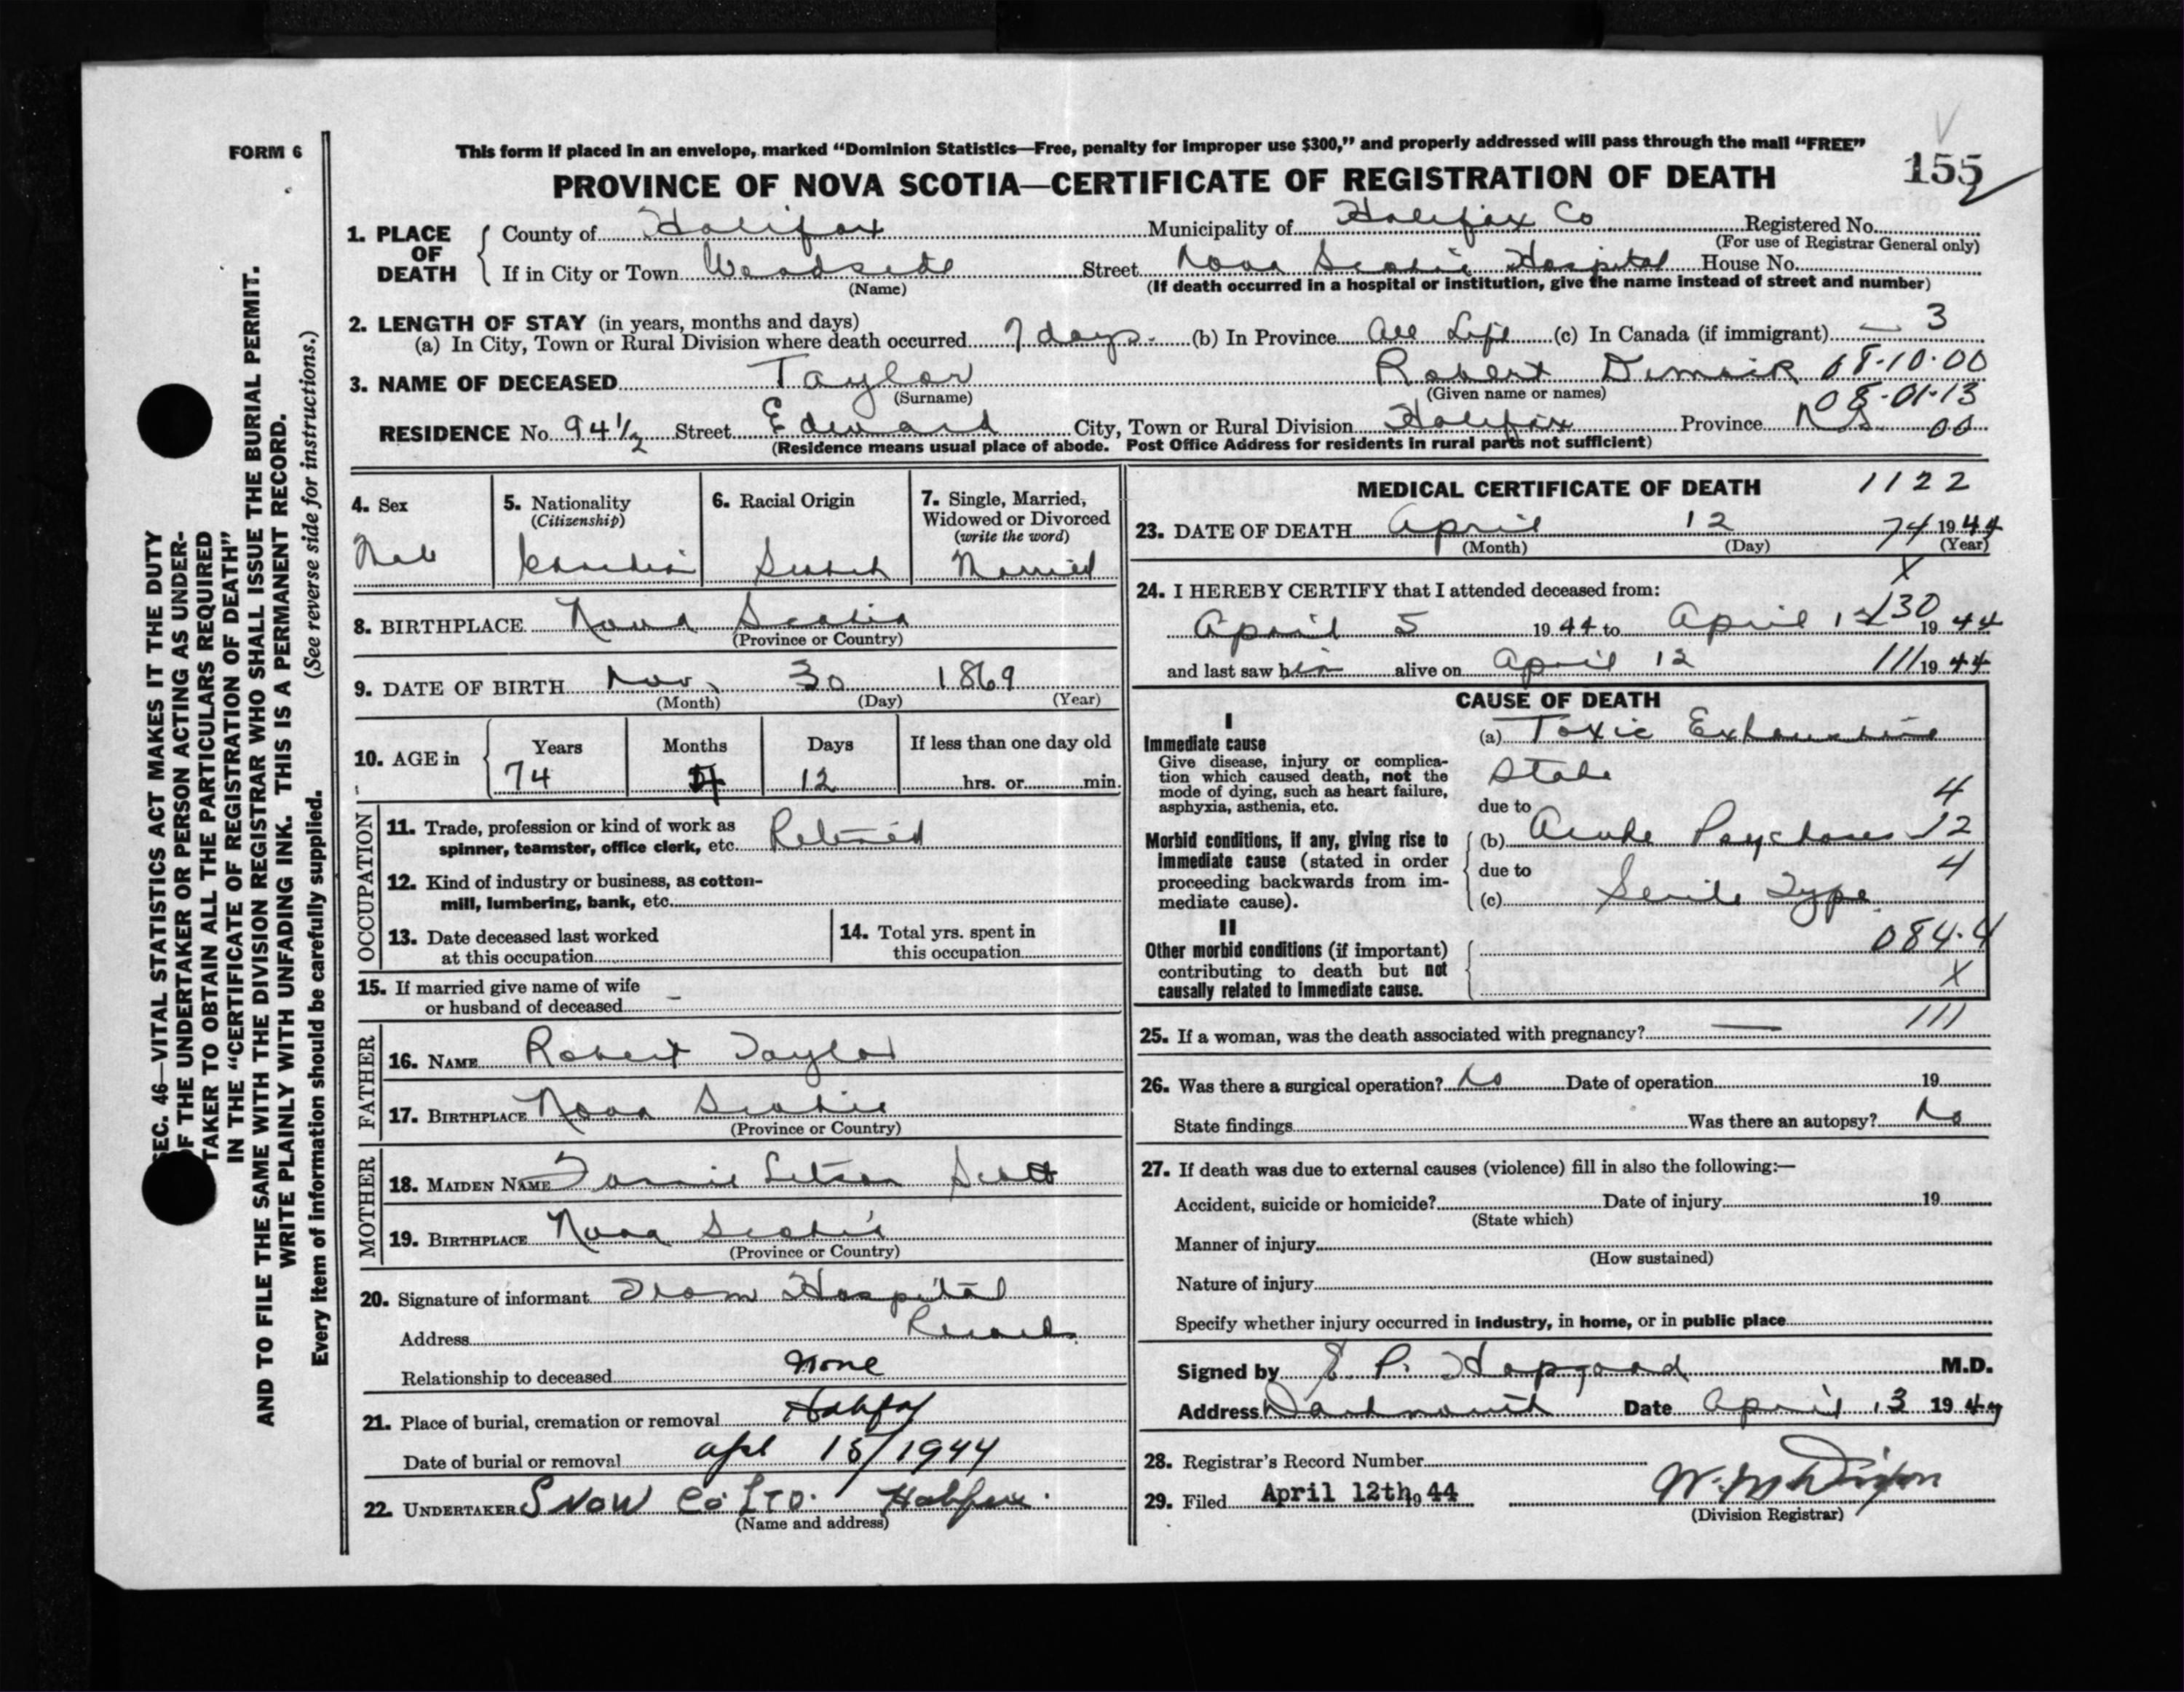 FORM 6
This form if placed in an envelope, marked “Dominion Statistics—Free, penalty for improper use $300,” and properly addressed will pass through the mail “FREE”
PROVINCE OF NOVA SCOTIA—CERTIFICATE OF REGISTRATION OF DEATH
155
1. PLACE OF DEATH
County of Halifax Municipality of Halifax Co Registered No.
(For use of Registrar General only)
If in City or Town Woodside Street Nova Scotia Hospital House No.
(Name) (If death occurred in a hospital or institution, give the name instead of street and number)
2. LENGTH OF STAY (in years, months and days)
(a) In City, Town or Rural Division where death occurred 7 days. (b) In Province All Life (c) In Canada (if immigrant) — 3
3. NAME OF DECEASED Taylor Robert Dimock 08-10-00
(Surname) (Given name or names) 08-01-13
RESIDENCE No. 94½ Street Edward City, Town or Rural Division Halifax Province NS 00
(Residence means usual place of abode. Post Office Address for residents in rural parts not sufficient)
4. Sex
Male
5. Nationality
(Citizenship)
Canadian
6. Racial Origin
Scotch
7. Single, Married, Widowed or Divorced
(write the word)
Married
8. BIRTHPLACE Nova Scotia
(Province or Country)
9. DATE OF BIRTH Nov. 30 1869
(Month) (Day) (Year)
10. AGE in
Years 74
Months 4
Days 12
If less than one day old
hrs. or min.
OCCUPATION
11. Trade, profession or kind of work as
spinner, teamster, office clerk, etc. Retired
12. Kind of industry or business, as cotton-
mill, lumbering, bank, etc.
13. Date deceased last worked
at this occupation
14. Total yrs. spent in
this occupation
15. If married give name of wife
or husband of deceased —
FATHER
16. NAME Robert Taylor
17. BIRTHPLACE Nova Scotia
(Province or Country)
MOTHER
18. MAIDEN NAME Fannie Letson Scott
19. BIRTHPLACE Nova Scotia
(Province or Country)
20. Signature of informant From Hospital
Address Records.
Relationship to deceased None
21. Place of burial, cremation or removal Halifax
Date of burial or removal Apl 15/1944
22. UNDERTAKER SNOW Co LTD. Halifax.
(Name and address)
MEDICAL CERTIFICATE OF DEATH 1122
23. DATE OF DEATH April 12 74 1944
(Month) (Day) (Year)
X
24. I HEREBY CERTIFY that I attended deceased from:
130
April 5 1944 to April 12 1944
and last saw him alive on April 12 111 1944
CAUSE OF DEATH
I
Immediate cause
Give disease, injury or complica-
tion which caused death, not the
mode of dying, such as heart failure,
asphyxia, asthenia, etc.
(a) Toxic Exhaustive
State
due to 4
Morbid conditions, if any, giving rise to
immediate cause (stated in order
proceeding backwards from im-
mediate cause).
(b) Acute Psychoses 12
due to 4
(c) Senile Type
II
Other morbid conditions (if important)
contributing to death but not
causally related to immediate cause.
084.4
X
111
25. If a woman, was the death associated with pregnancy? —
26. Was there a surgical operation? No Date of operation 19
State findings Was there an autopsy? No
27. If death was due to external causes (violence) fill in also the following:—
Accident, suicide or homicide? Date of injury 19
(State which)
Manner of injury
(How sustained)
Nature of injury
Specify whether injury occurred in industry, in home, or in public place
Signed by E. P. Hopgood M.D.
Address Dartmouth Date April 13 1944
28. Registrar's Record Number
29. Filed April 12th 1944
(Division Registrar)
SEC. 46—VITAL STATISTICS ACT MAKES IT THE DUTY
OF THE UNDERTAKER OR PERSON ACTING AS UNDER-
TAKER TO OBTAIN ALL THE PARTICULARS REQUIRED
IN THE “CERTIFICATE OF REGISTRATION OF DEATH”
AND TO FILE THE SAME WITH THE DIVISION REGISTRAR WHO SHALL ISSUE THE BURIAL PERMIT.
WRITE PLAINLY WITH UNFADING INK. THIS IS A PERMANENT RECORD.
Every item of information should be carefully supplied. (See reverse side for instructions.)